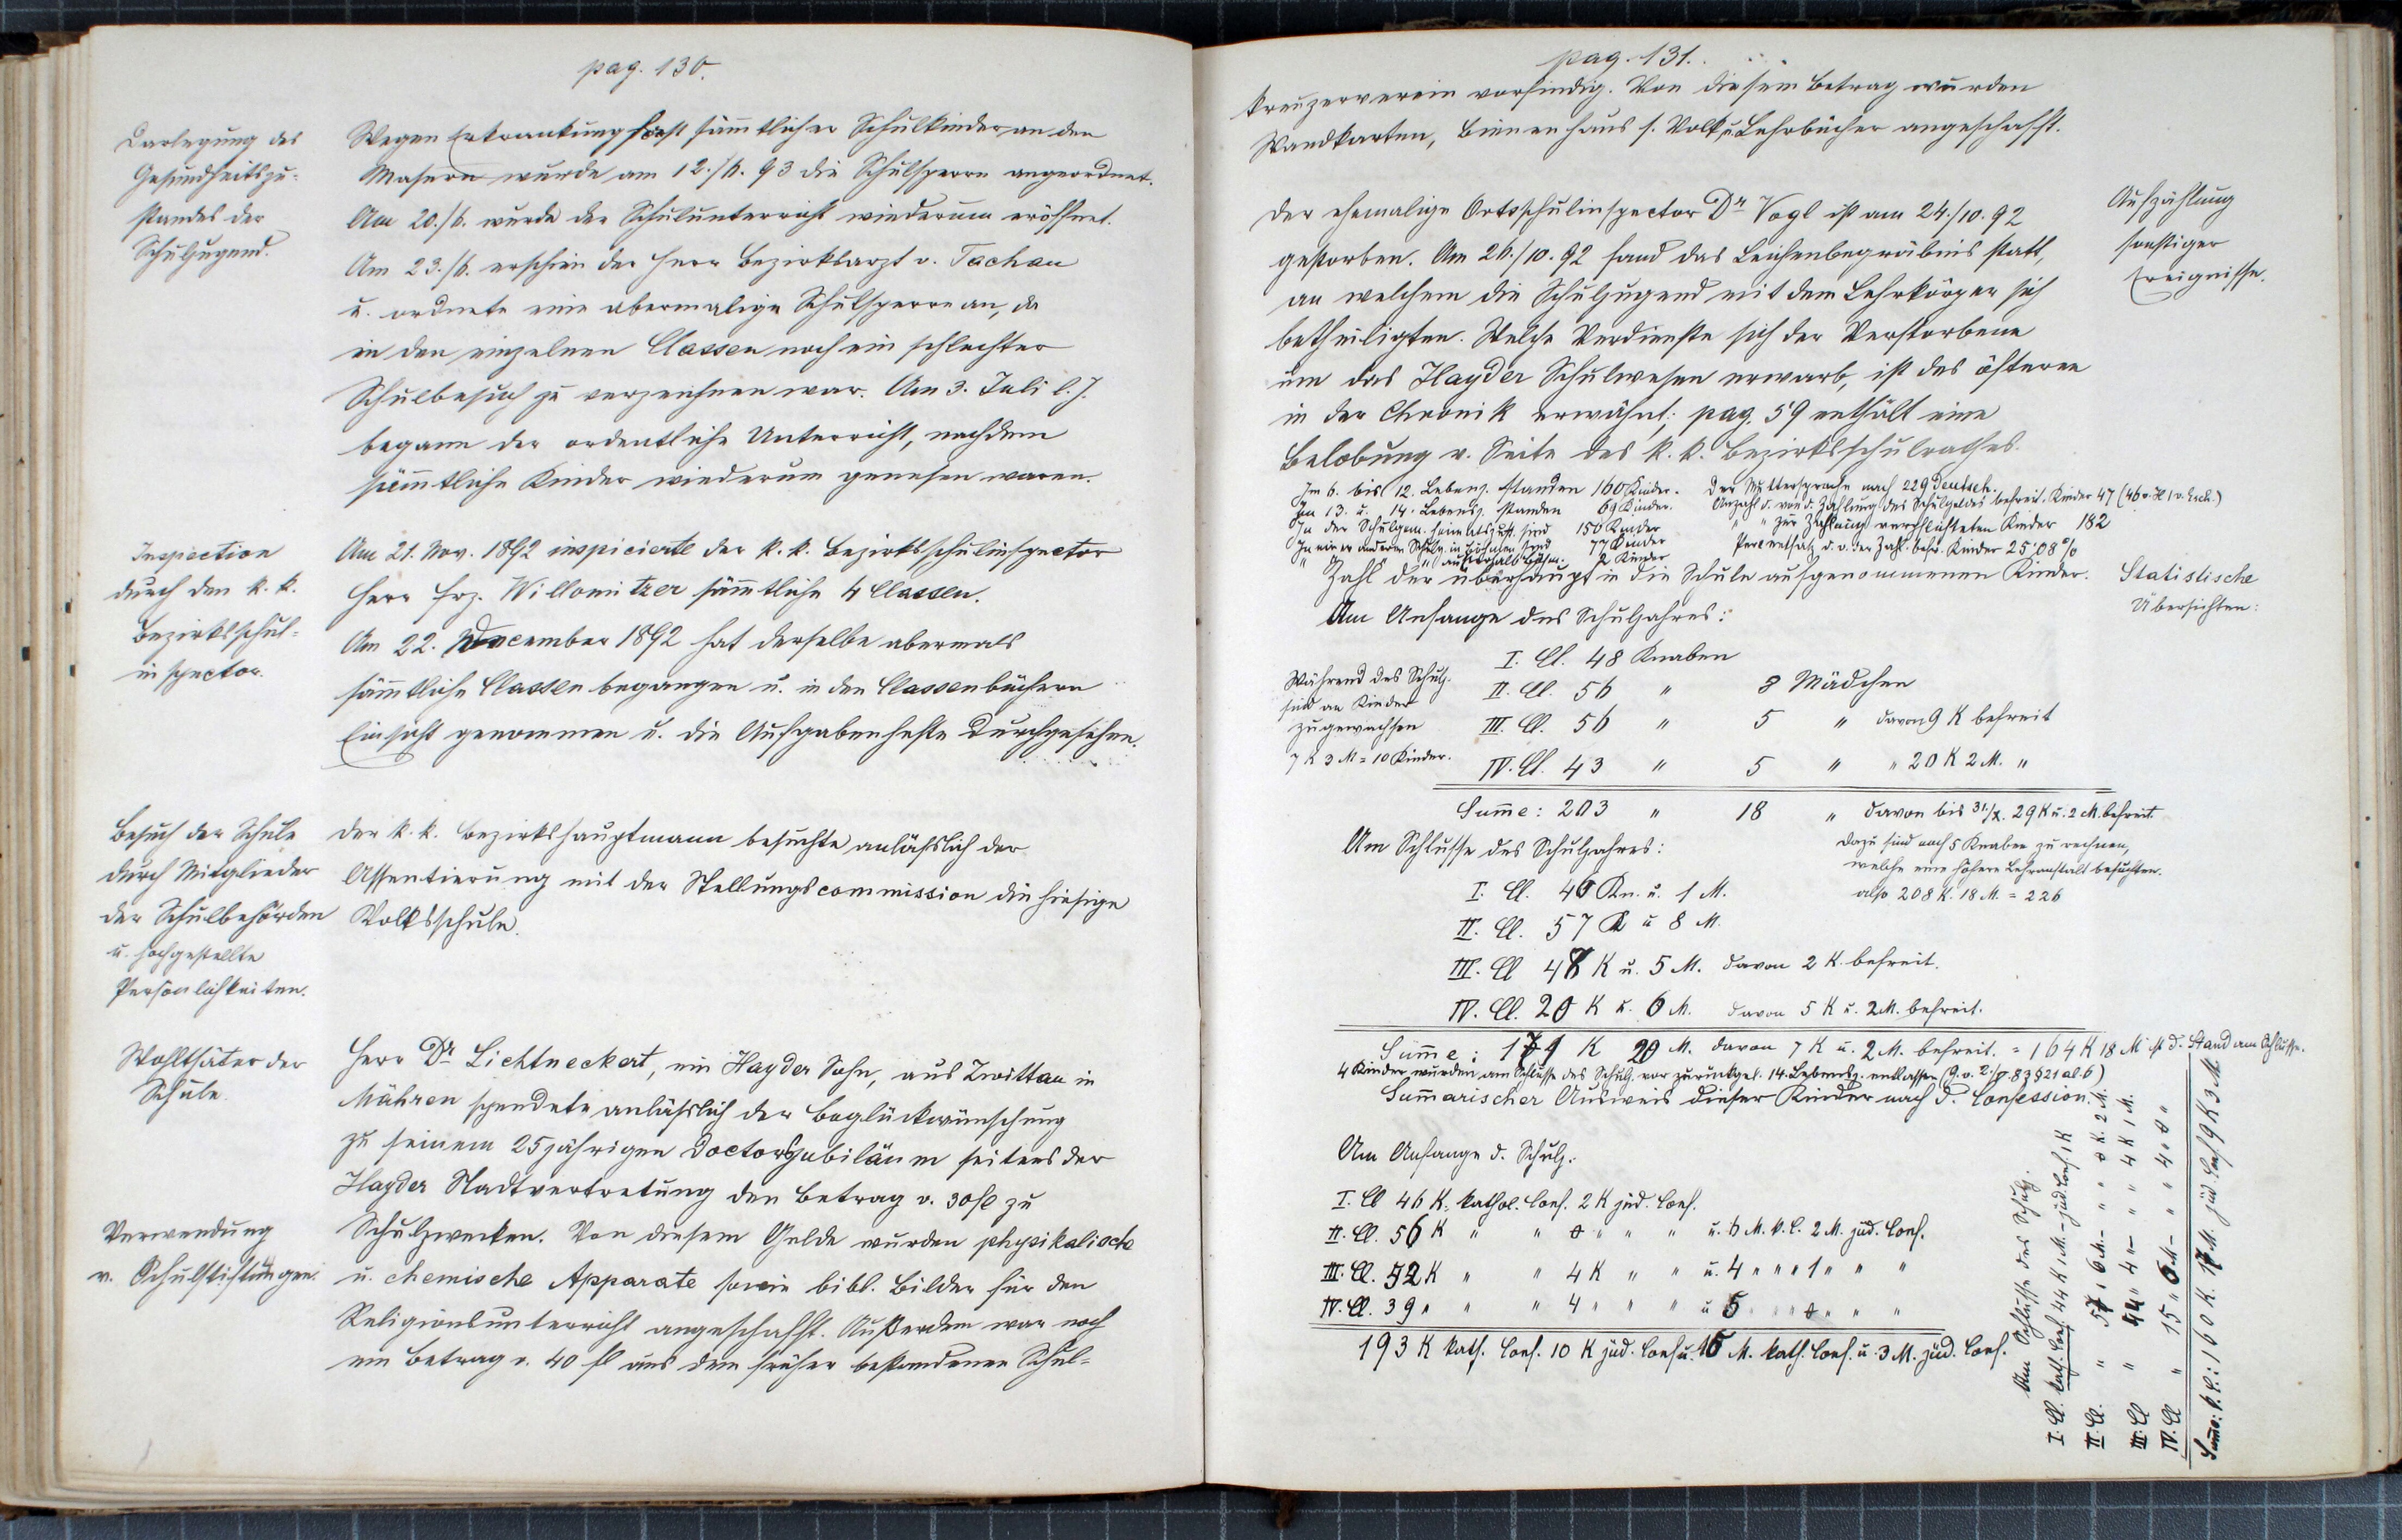 pag. 130.
Darlegung des
Gesundheitszu-
standes der
Schuljugend.
Wegen Erkrankung fast sämmtlicher Schulkinder an den
Masern wurde am 12./6. 93 die Schulsperre angeordnet.
Am 20./6. wurde der Schulunterricht wiederum eröffnet.
Am 23./6. erschien der Herr Bezirksarzt v. Tachau
u. ordnete eine abermalige Schulsperre an, da
in den einzelnen Classen noch ein schlechter
Schulbesuch zu verzeichnen war. Am 3. Juli l. J.
begann der ordentliche Unterricht, nachdem
sämmtliche Kinder wiederum genesen waren.
Inspection
durch den k. k.
Bezirksschul-
inspector.
Am 21. Nov. 1892 inspicierte der k. k. Bezirksschulinspector
Herr Frz. Willomitzer sämmtliche 4 Classen.
Am 22. December 1892 hat derselbe abermals
sämmtliche Classen begangen u. in den Classenbüchern
Einsicht genommen u. die Aufgabenhefte durchgesehen.
Besuch der Schule
durch Mitglieder
der Schulbehörden
u. hochgestellte
Persönlichkeiten.
Der k. k. Bezirkshauptmann besuchte anläßlich der
Assentierung mit der Stellungscommission die hiesige
Volksschule.
Wohlthäter der
Schule.
Herr Dr Lichtneckert, ein Hayder Sohn, aus Zwittau in
Mähren spendete anläßlich der Beglückwünschung
zu seinem 25jährigen Doctorsjubiläum seitens der
Hayder Stadtvertretung den Betrag v. 30 fl zu
Verwendung
v. Schulstiftungen.
Schulzwecken. Von diesem Gelde wurden physikalische
u. chemische Apparate sowie bibl. Bilder für den
Religionsunterricht angeschafft. Außerdem war noch
ein Betrag v. 40 fl aus dem früher bestandenen Schul-
pag. 131.
kreuzerverein vorfindig. Von diesem Betrag wurden
Wandkarten, Bienenhaus s. Volk u. Lehrbücher angeschafft.
Aufzählung
sonstiger
Ereignisse.
Der ehemalige Ortsschulinspector Dr Vogl ist am 24./10. 92
gestorben. Am 26./10. 92 fand das Leichenbegräbnis statt,
an welchem die Schuljugend mit dem Lehrkörper sich
betheiligten. Welche Verdienste sich der Verstorbene
um das Hayder Schulwesen erwarb, ist des öfteren
in der Chronik erwähnt; pag. 59 enthält eine
Belobung v. Seite des k. k. Bezirksschulrathes.
Im 6. bis 12. Lebensj. standen 160 Kinder. Der Muttersprache nach 229 Deutsch.
Im 13. u. 14. Lebensj. standen 69 Kinder. Anzahl d. von d. Zahlung des Schulgeldes befreit. Kinder 47
In der Schulgem. heimatszust. sind 150 Kinder " " zur Zahlung verpflichteten Kinder 182
In einer anderen Schulg. in Böhmen sind 77 Kinder Percentsatz d. v. der Zahl. befr. Kinder 25'08 %
" " " außerhalb Böhm. 2 Kinder
Zahl der überhaupt in die Schule aufgenommenen Kinder.
Statistische
Übersichten:
Am Anfange des Schuljahres:
I. Cl. 48 Knaben
II. Cl. 56 " 8 Mädchen
III. Cl. 56 " 5 " davon 9 K befreit
IV. Cl. 43 " 5 " " 20 K 2 M. "
Während des Schulj.
sind an Kinder
zugewachsen
7 K 3 M = 10 Kinder.
Summe: 203 " 18 " davon bis 31./X. 29 K u. 2 M. befreit.
Dazu sind noch 5 Knaben zu rechnen,
welche eine höhere Lehranstalt besuchten.
also 208 K. 18 M. = 226
Am Schlusse des Schuljahres:
I. Cl. 46 Kn. u. 1 M.
II. Cl. 57 K u 8 M.
III. Cl 48 K u. 5 M. davon 2 K. befreit.
IV. Cl. 20 K u. 6 M. davon 5 K u. 2 M. befreit.
Summe: 171 K 20 M. davon 7 K u. 2 M. befreit. = 164 K 18 M ist d. Stand am Schlusse.
4 Kinder wurden am Schlusse des Schulj. vor zurückgel. 14. Lebensj. entlassen
Summarischer Ausweis dieser Kinder nach d. Confession.
Am Anfange d. Schulj.
I. Cl 46 K. kathol. Conf. 2 K jüd. Conf.
II. Cl. 56 K " " 0 " " " u. 6 M. k. C. 2 M. jüd. Conf.
III. Cl. 52 K " " 4 K " " u. 4 " " " 1 " " "
IV. Cl. 39 " " " 4 " " " u 5 " " " 0 " " "
193 K kath. Conf. 10 K jüd. Conf. u. 15 M. kath. Conf. u. 3 M. jüd. Conf.
Am Schlusse des Schulj.
I. Cl. kath. Conf. 44 K 1 M. - jüd. Conf. 1 K
II. Cl. " 57 " 6 M. - " " 0 K. 2 M.
III. Cl " 44 " 4 " - " " 4 K 1 M.
IV. Cl " 15 " 6 M - " " 4 " 0 "
Summe: k. C.: 160 K. 17 M. jüd Conf 9 K 3 M